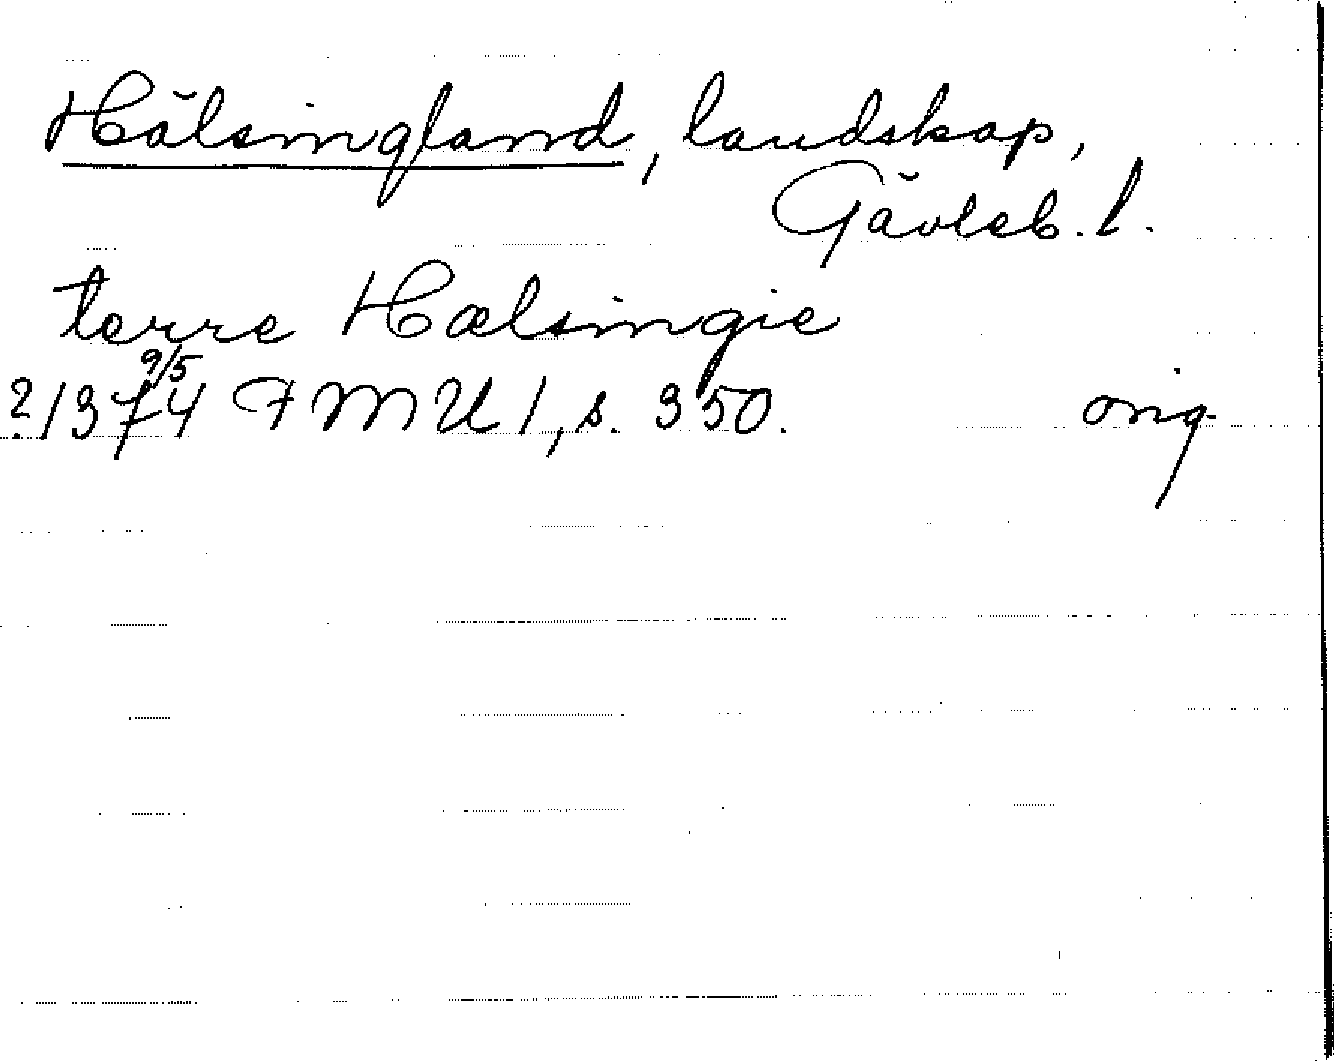 Hälsingland, landskap,
Gävleb. l.
terre Hælsingie
9/5
? 1374 FMU 1, s. 350. orig.